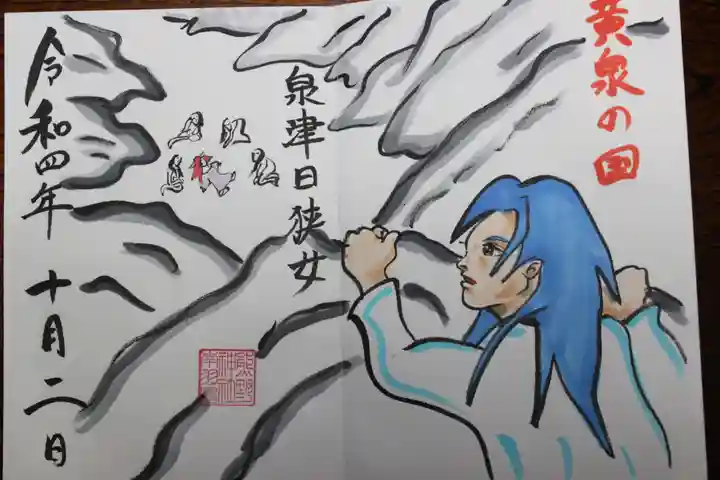 黄泉の国
泉津日狭女
令和四年 十月二日
熊野
神社